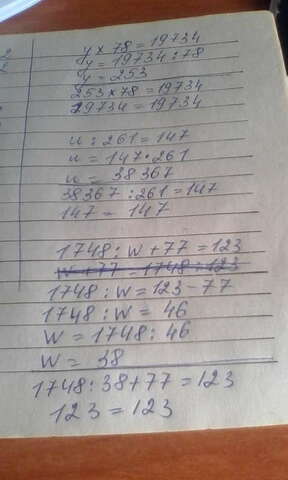 y × 78 = 19734
y = 19734 : 78
y = 253
253 × 78 = 19734
19734 = 19734
u : 261 = 147
u = 147 · 261
u = 38367
38367 : 261 = 147
147 = 147
1748 : w + 77 = 123
w + 77 = 1748 : 123
1748 : w = 123 - 77
1748 : w = 46
w = 1748 : 46
w = 38
1748 : 38 + 77 = 123
123 = 123